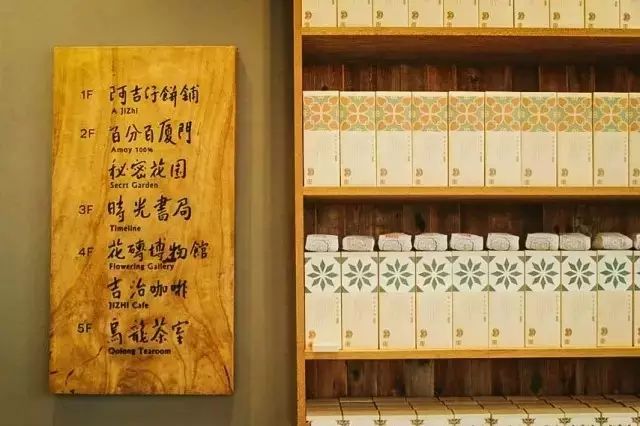 1F 阿吉仔餅鋪
A JiZhi
2F 百分百厦門
Amoy 100%
秘密花园
Secrt Garden
3F 時光書局
Timeline
4F 花磚博物館
Flowering Gallery
吉治咖啡
JIZHI Cafe
5F 烏龍茶室
Oolong Tearoom